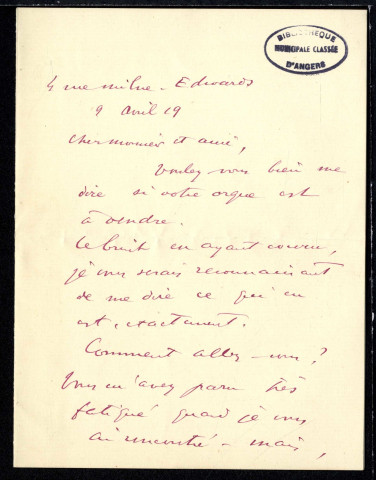 BIBLIOTHÈQUE
MUNICIPALE CLASSÉE
D'ANGERS
4 rue Milne-Edwards
9 avril 19
Cher monsieur et ami,
Voulez vous bien me
dire si votre orgue est
à vendre.
Le bruit en ayant couru,
je vous serais reconnaissant
de me dire ce qu'il en
est, exactement.
Comment allez-vous ?
Vous m'avez paru très
fatigué quand je vous
ai rencontré - mais,